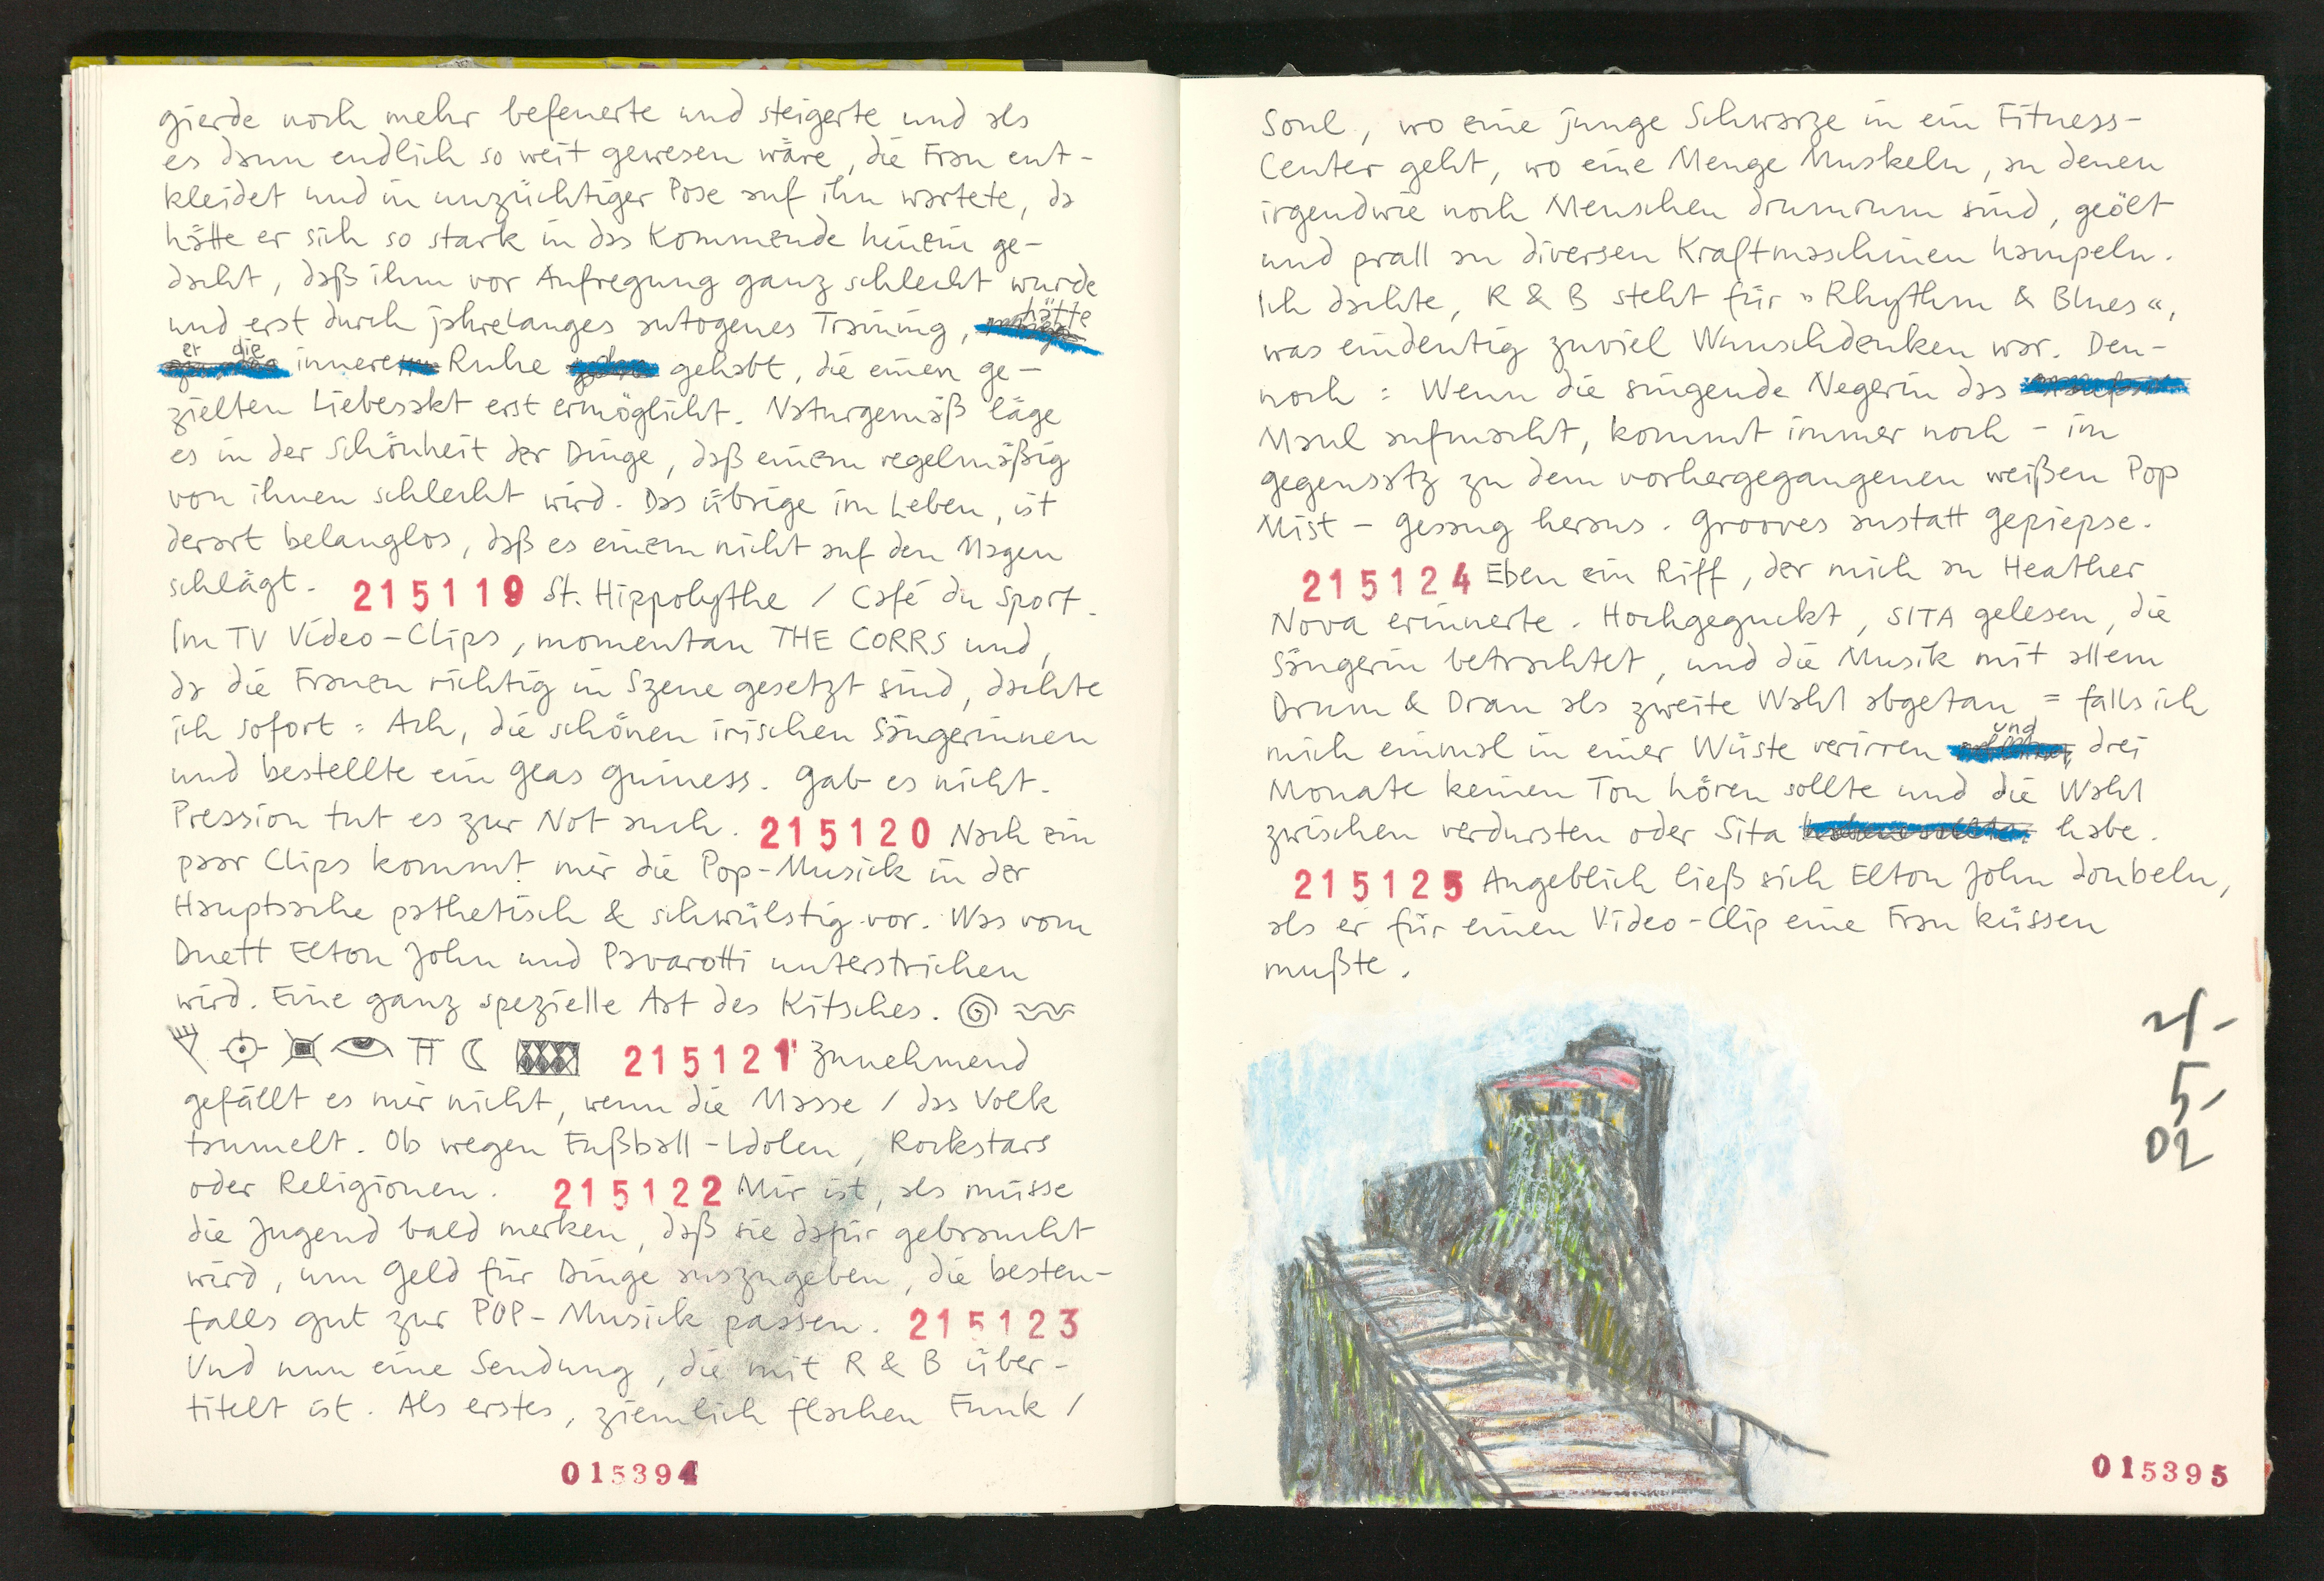 gierde noch mehr befeuerte und steigerte und als
es dann endlich so weit gewesen wäre, die Frau ent-
kleidet und in unzüchtiger Pose auf ihn wartete, da
hätte er sich so stark in das Kommende hinein ge-
dacht, daß ihm vor Aufregung ganz schlecht wurde
und erst durch jahrelanges autogenes Training, hätte
er die innere Ruhe gehabt, die einen ge-
zielten Liebesakt erst ermöglicht. Naturgemäß läge
es in der Schönheit der Dinge, daß einem regelmäßig
von ihnen schlecht wird. Das übrige im Leben, ist
derart belanglos, daß es einem nicht auf den Magen
schlägt. 215119 St. Hippolythe / Café du Sport.
Im TV Video-Clips, momentan THE CORRS und,
da die Frauen richtig in Szene gesetzt sind, dachte
ich sofort: Ach, die schönen irischen Sängerinnen
und bestellte ein Glas Guiness. Gab es nicht.
Pression tut es zur Not auch. 215120 Nach ein
paar Clips kommt mir die Pop-Musick in der
Hauptsache pathetisch & schwülstig vor. Was vom
Duett Elton John und Pavarotti unterstrichen
wird. Eine ganz spezielle Art des Kitsches.
215121 Zunehmend
gefällt es mir nicht, wenn die Masse / das Volk
taumelt. Ob wegen Fußball-Idolen, Rockstars
oder Religionen. 215122 Mir ist, als müsse
die Jugend bald merken, daß sie dafür gebraucht
wird, um Geld für Dinge auszugeben, die besten-
falls gut zur POP-Musick passen. 215123
Und nun eine Sendung, die mit R & B über-
titelt ist. Als erstes, ziemlich flachen Funk /
015394
Soul, wo eine junge Schwarze in ein Fitness-
Center geht, wo eine Menge Muskeln, an denen
irgendwie noch Menschen drumrum sind, geölt
und prall an diversen Kraftmaschinen hampeln.
Ich dachte, R & B steht für »Rhythm & Blues«,
was eindeutig zuviel Wunschdenken war. Den-
noch: Wenn die singende Negerin das
Maul aufmacht, kommt immer noch – im
gegensatz zu dem vorhergegangenen weißen Pop
Mist – Gesang heraus. Grooves anstatt Gepiepse.
215124 Eben ein Riff, der mich an Heather
Nova erinnerte. Hochgeguckt, SITA gelesen, die
Sängerin betrachtet, und die Musik mit allem
Drum & Dran als zweite Wahl abgetan = falls ich
mich einmal in einer Wüste verirren und drei
Monate keinen Ton hören sollte und die Wahl
zwischen verdursten oder Sita habe.
215125 Angeblich ließ sich Elton John doubeln,
als er für einen Video-Clip eine Frau küssen
mußte.
21-
5-
02
015395